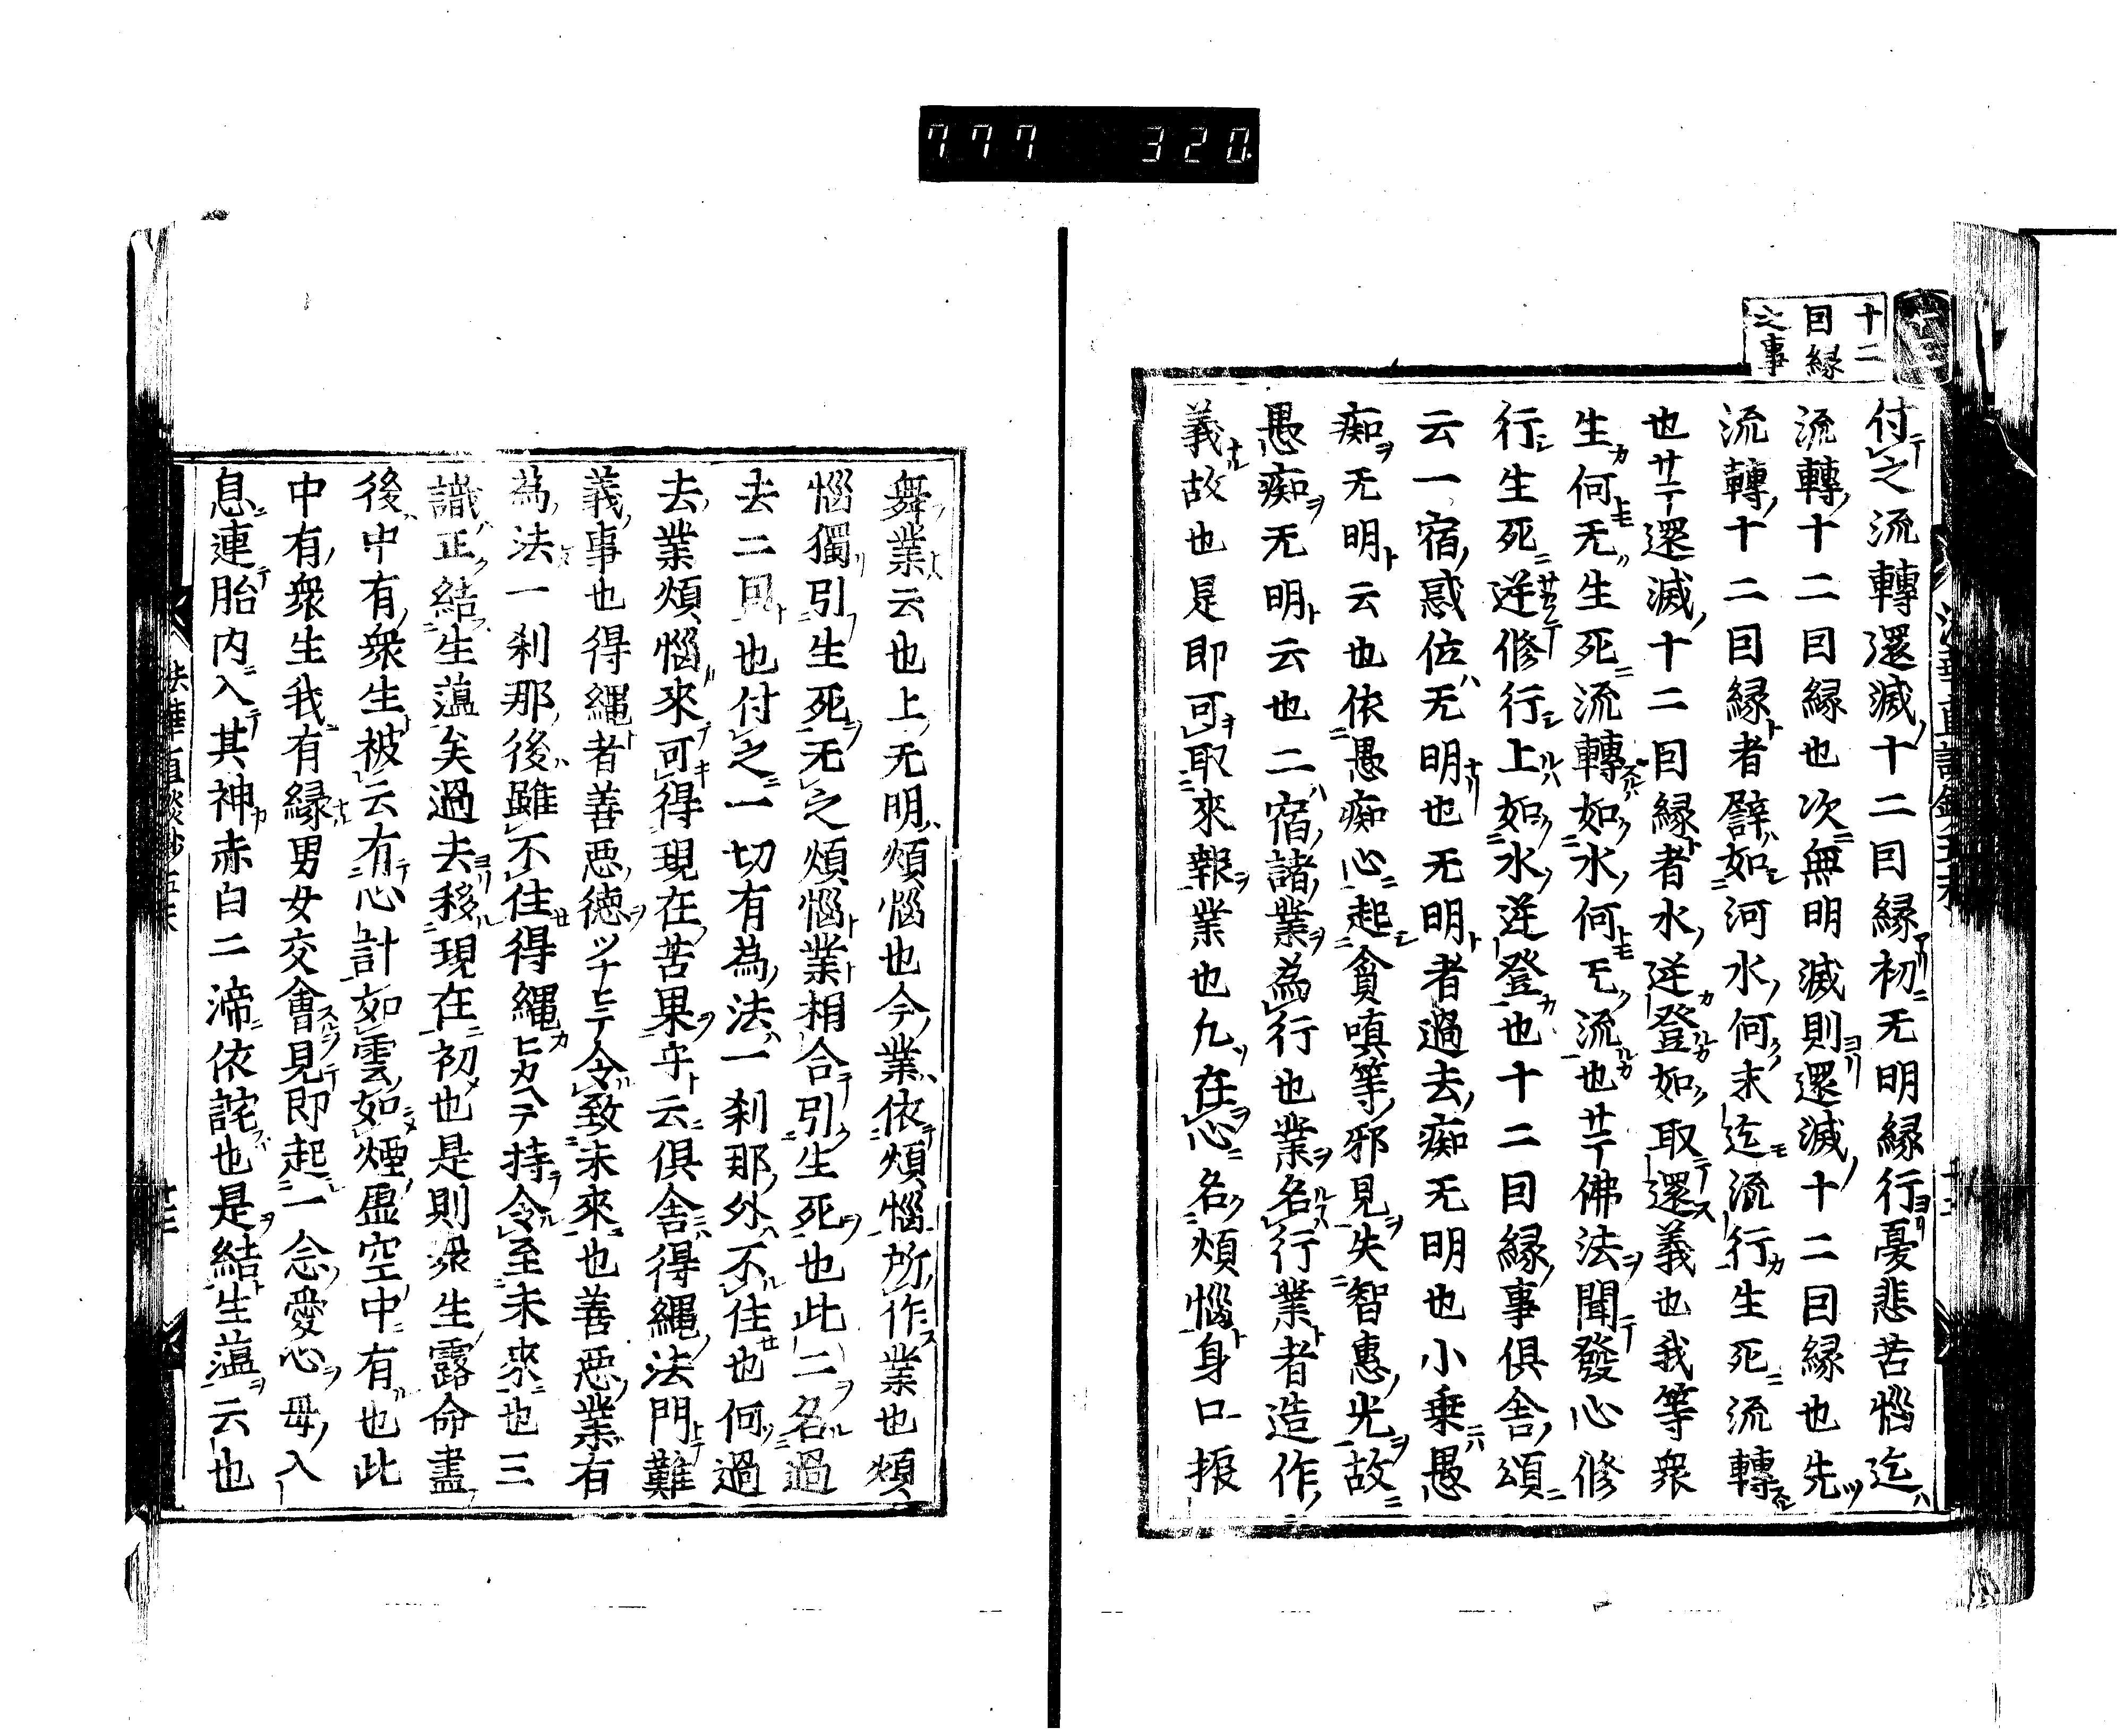 777 320
十二
因縁
之事
付之流轉還滅十二因縁初无明縁行憂悲苦惱迄
流轉十二因縁也次無明滅則還滅十二因縁也先
流轉十二因縁者譬如河水何末迄流行生死流轉
也サテ還滅十二因縁者水逆登如取還義也我等衆
生何无生死流轉如水何モ流也サテ佛法聞發心修
行生死逆修行上如水逆登也十二因縁事俱舎頌
云一宿惑位无明也无明者過去痴无明也小乗愚
痴无明云也依愚痴心起貪嗔等邪見失智惠光故
愚痴无明云也二宿諸業為行也業名行業者造作
義故也是即可取來報業也凢在心名煩惱身口振
舞業云也上无明煩惱也今業依煩惱所作業也煩
惱獨引生死无之煩惱業相合引生死也此二名過
去二因也付之一切有為法一刹那外不住也何過
去業煩惱來可得現在苦果乎云俱舎得縄法門難
義事也得縄者善悪徳ツナヒテ令致未來也善悪業有
為法一刹那後雖不住得縄ヒカヘテ持令至未來也三
識正結生蘊矣過去移現在初也是則衆生露命盡
後中有衆生被云有心計如雲如煙虚空中有也此
中有衆生我有縁男女交會見即起一念愛心毋入
息連胎内入其神赤白二渧依詫也是結生蘊云也